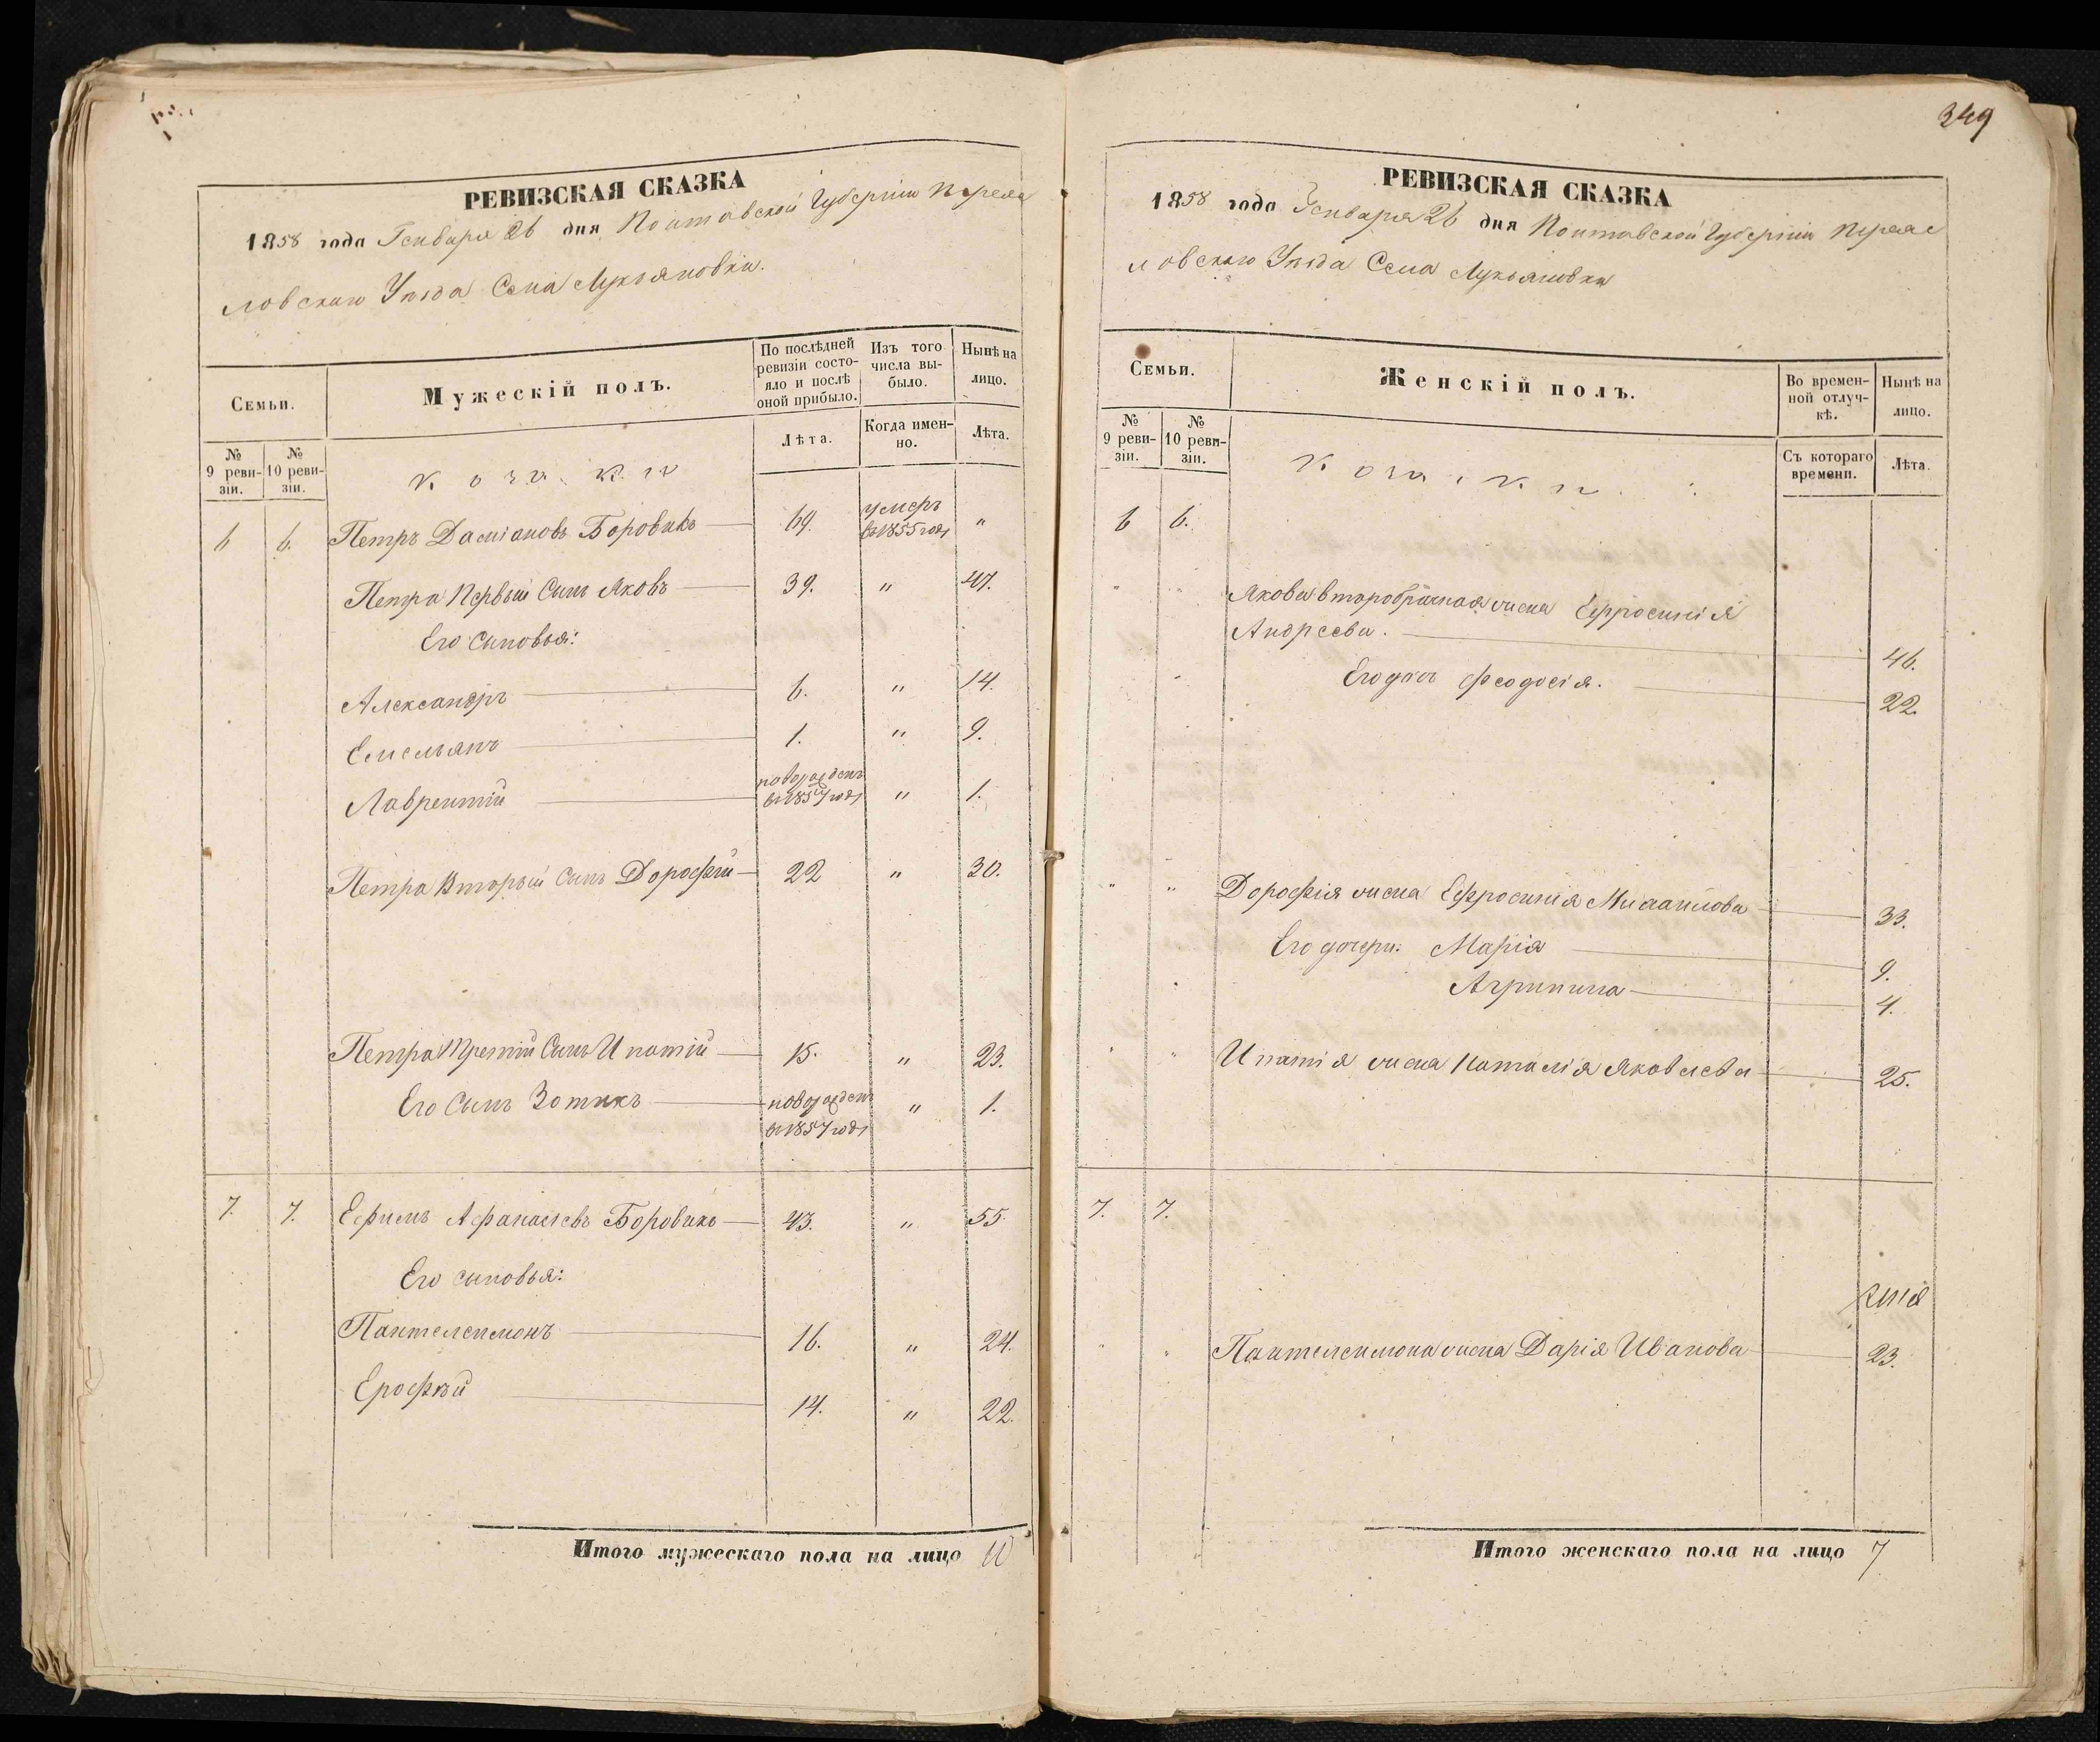 РЕВИЗСКАЯ СКАЗКА
1858 года Генваря 26 дня Полтавской Губернiи Переяс
ловскаго Уѣзда Села Лукьяновки.
Семьи.
Мужескiй полъ.
По послѣдней ревизiи состо-
яло и послѣ оной прибыло.
Изъ того числа вы-
было.
Нынѣ на лицо.
№ 9 реви-
зiи.
№ 10 реви-
зiи.
Козаки
Лѣта.
Когда имен-
но.
Лѣта.
6 6. Петръ Дамiановъ Боровикъ 69. умеръ въ 1855 году "
Петра Первый Сынъ Яковъ 39. " 47.
Его Сыновья:
Александръ 6. " 14.
Емельянъ 1. " 9.
Лаврентiй новорожденъ въ 1857 году " 1.
Петра Вторый Сынъ Дорофѣй 22 " 30.
Петра Третiй Сынъ Ипатiй 15. " 23.
Его Сынъ Зотикъ новорожденъ въ 1857 году " 1.
7. 7. Ефимъ Афанасiевъ Боровикъ 43. " 55
Его сыновья:
Пантелеимонъ 16. " 24.
Ерофѣй 14. " 22.
Итого мужескаго пола на лицо 10
349
РЕВИЗСКАЯ СКАЗКА
1858 года Генваря 26 дня Полтавской Губернiи Переяс
ловскаго Уѣзда Села Лукьяновки
Семьи.
Женскiй полъ.
Во времен-
ной отлуч-
кѣ.
Нынѣ на лицо.
№ 9 реви-
зiи.
№ 10 реви-
зiи.
Козаки
Съ котораго времени.
Лѣта.
6 6.
" " Якова второбрачная жена Ефросинiя
Андреева. 46.
" Его дочь Феодосiя. 22.
" " Дорофѣя жена Ефросинiя Михаилова 33.
Его дочери: Марiя 9.
" Агрипина 4.
" " Ипатiя жена Наталiя Яковлева 25.
7. 7.
" " Пантелеимона жена Дарiя Иванова 23.
Итого женскаго пола на лицо 7